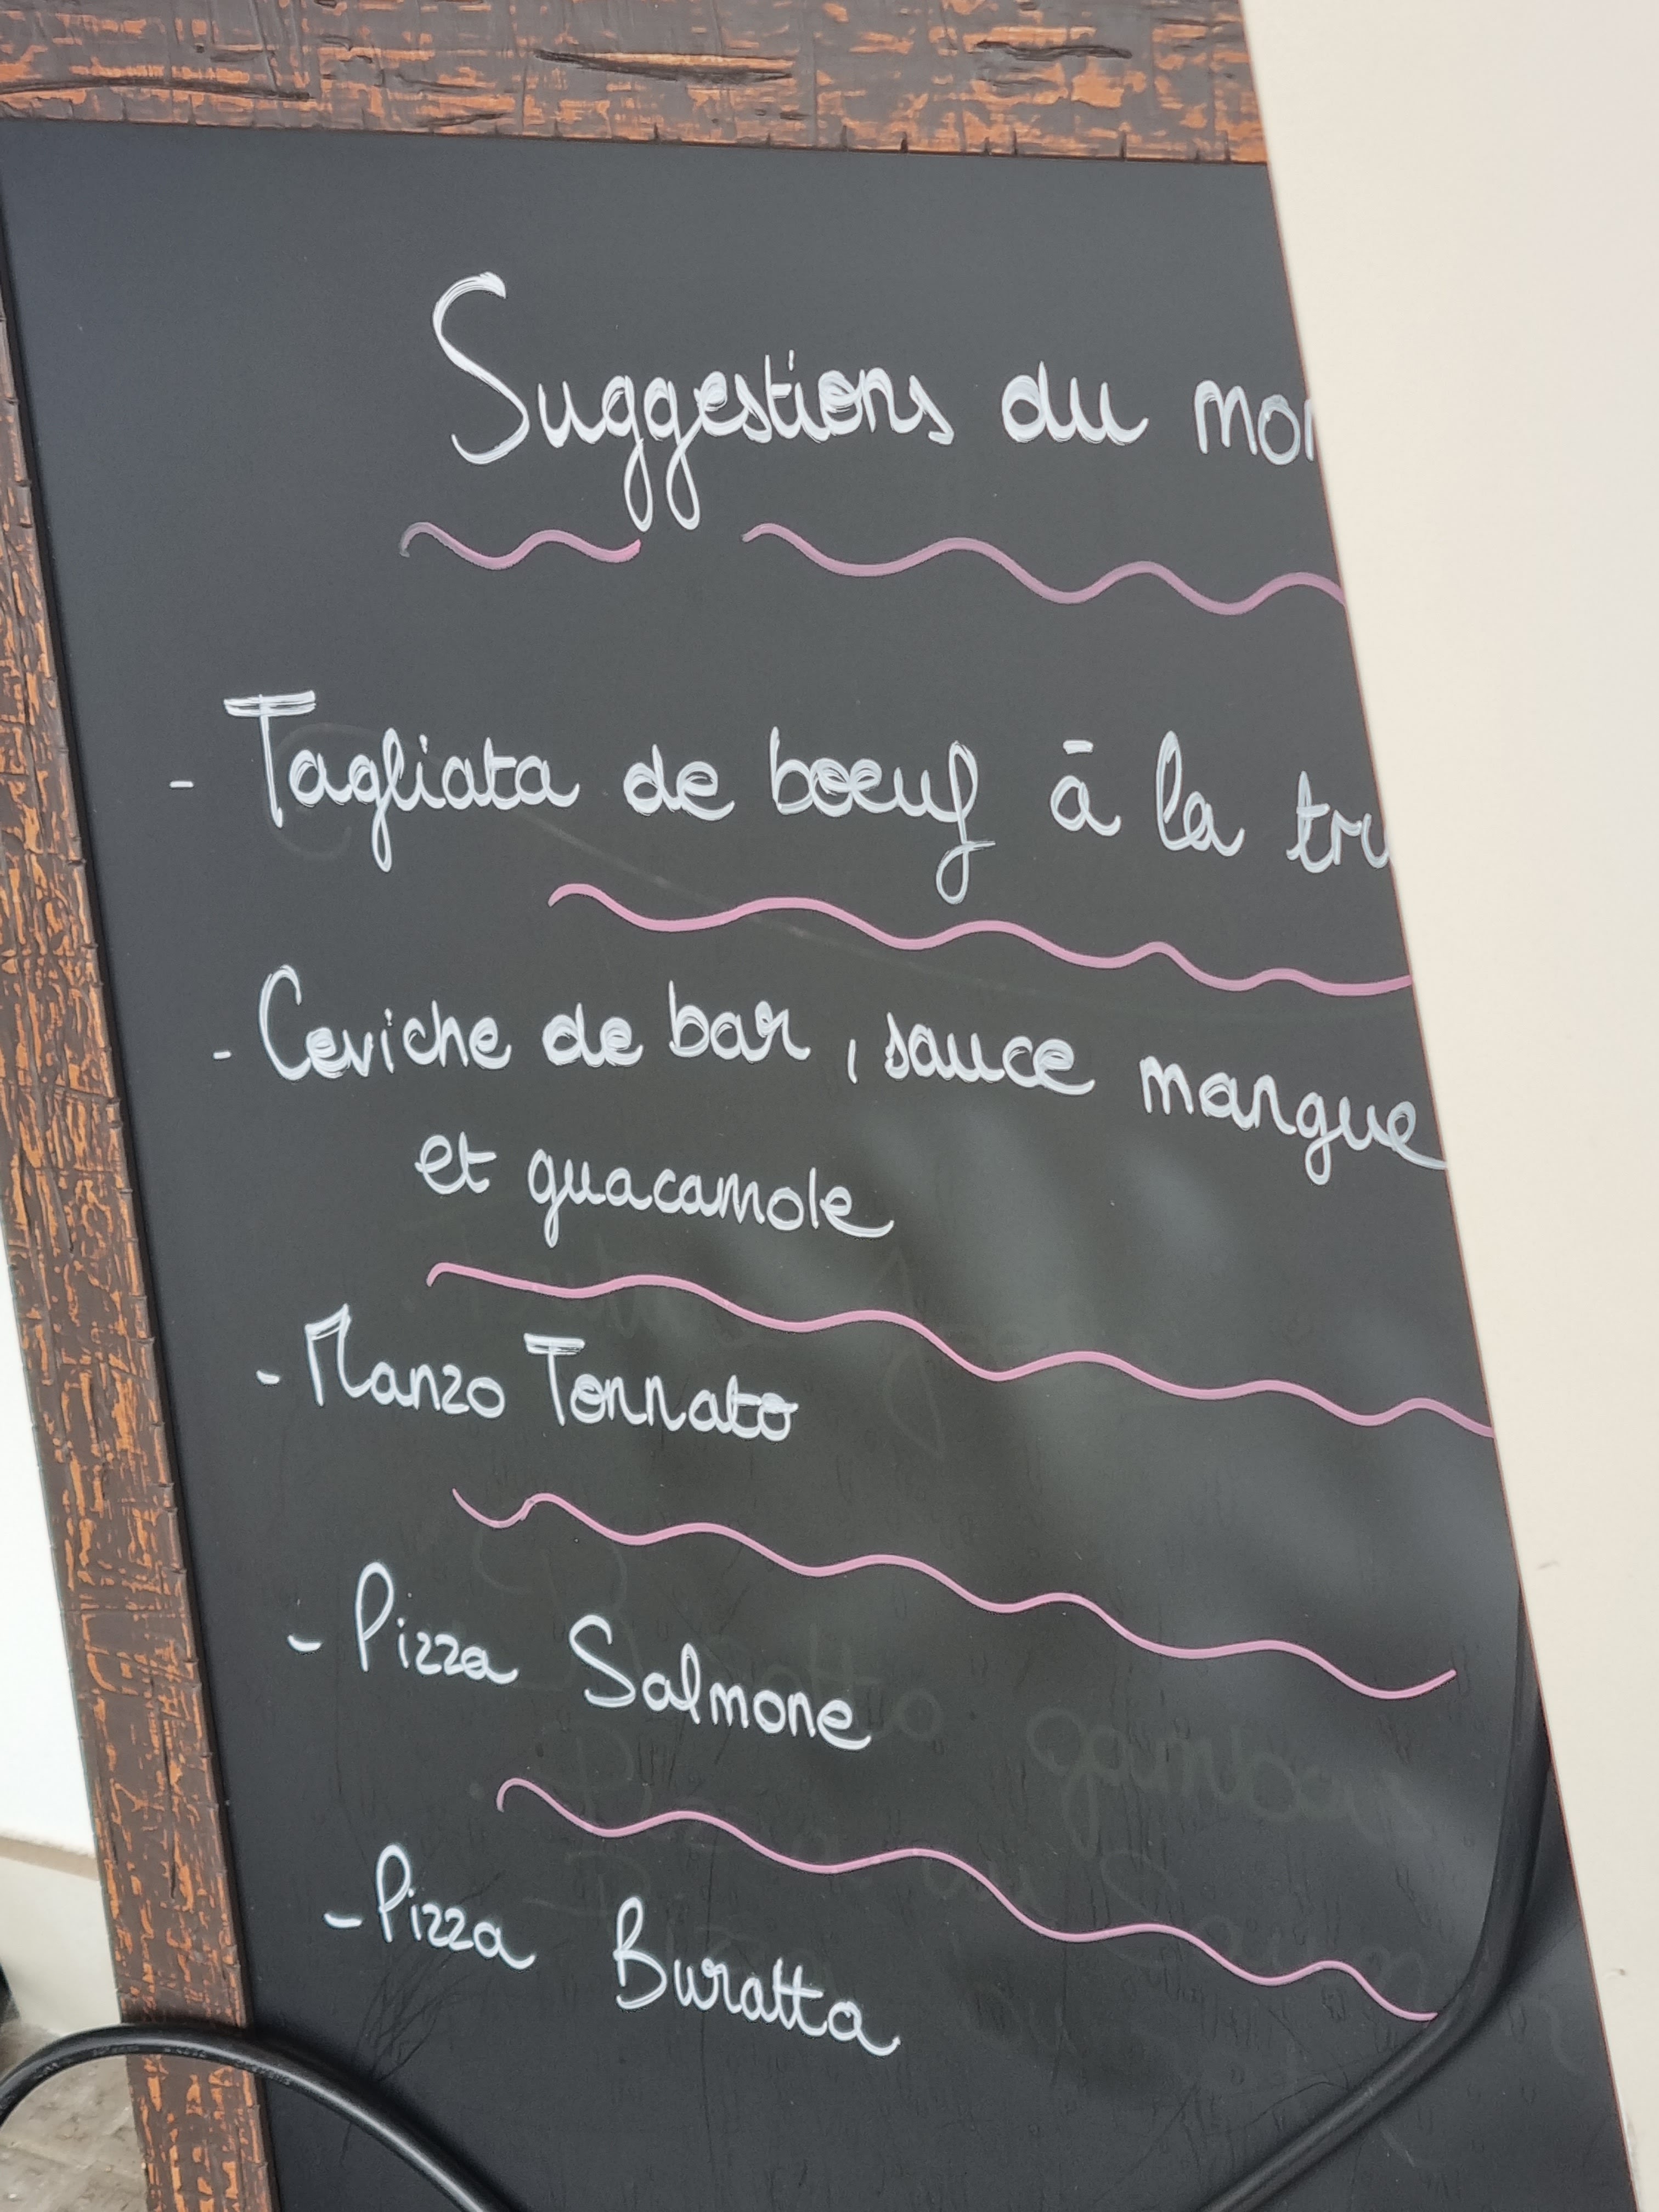 Suggestions du mom
- Tagliata de boeuf à la tru
- Ceviche de bar, sauce mangue
et guacamole
- Manzo Tonnato
- Pizza Salmone
- Pizza Buratta